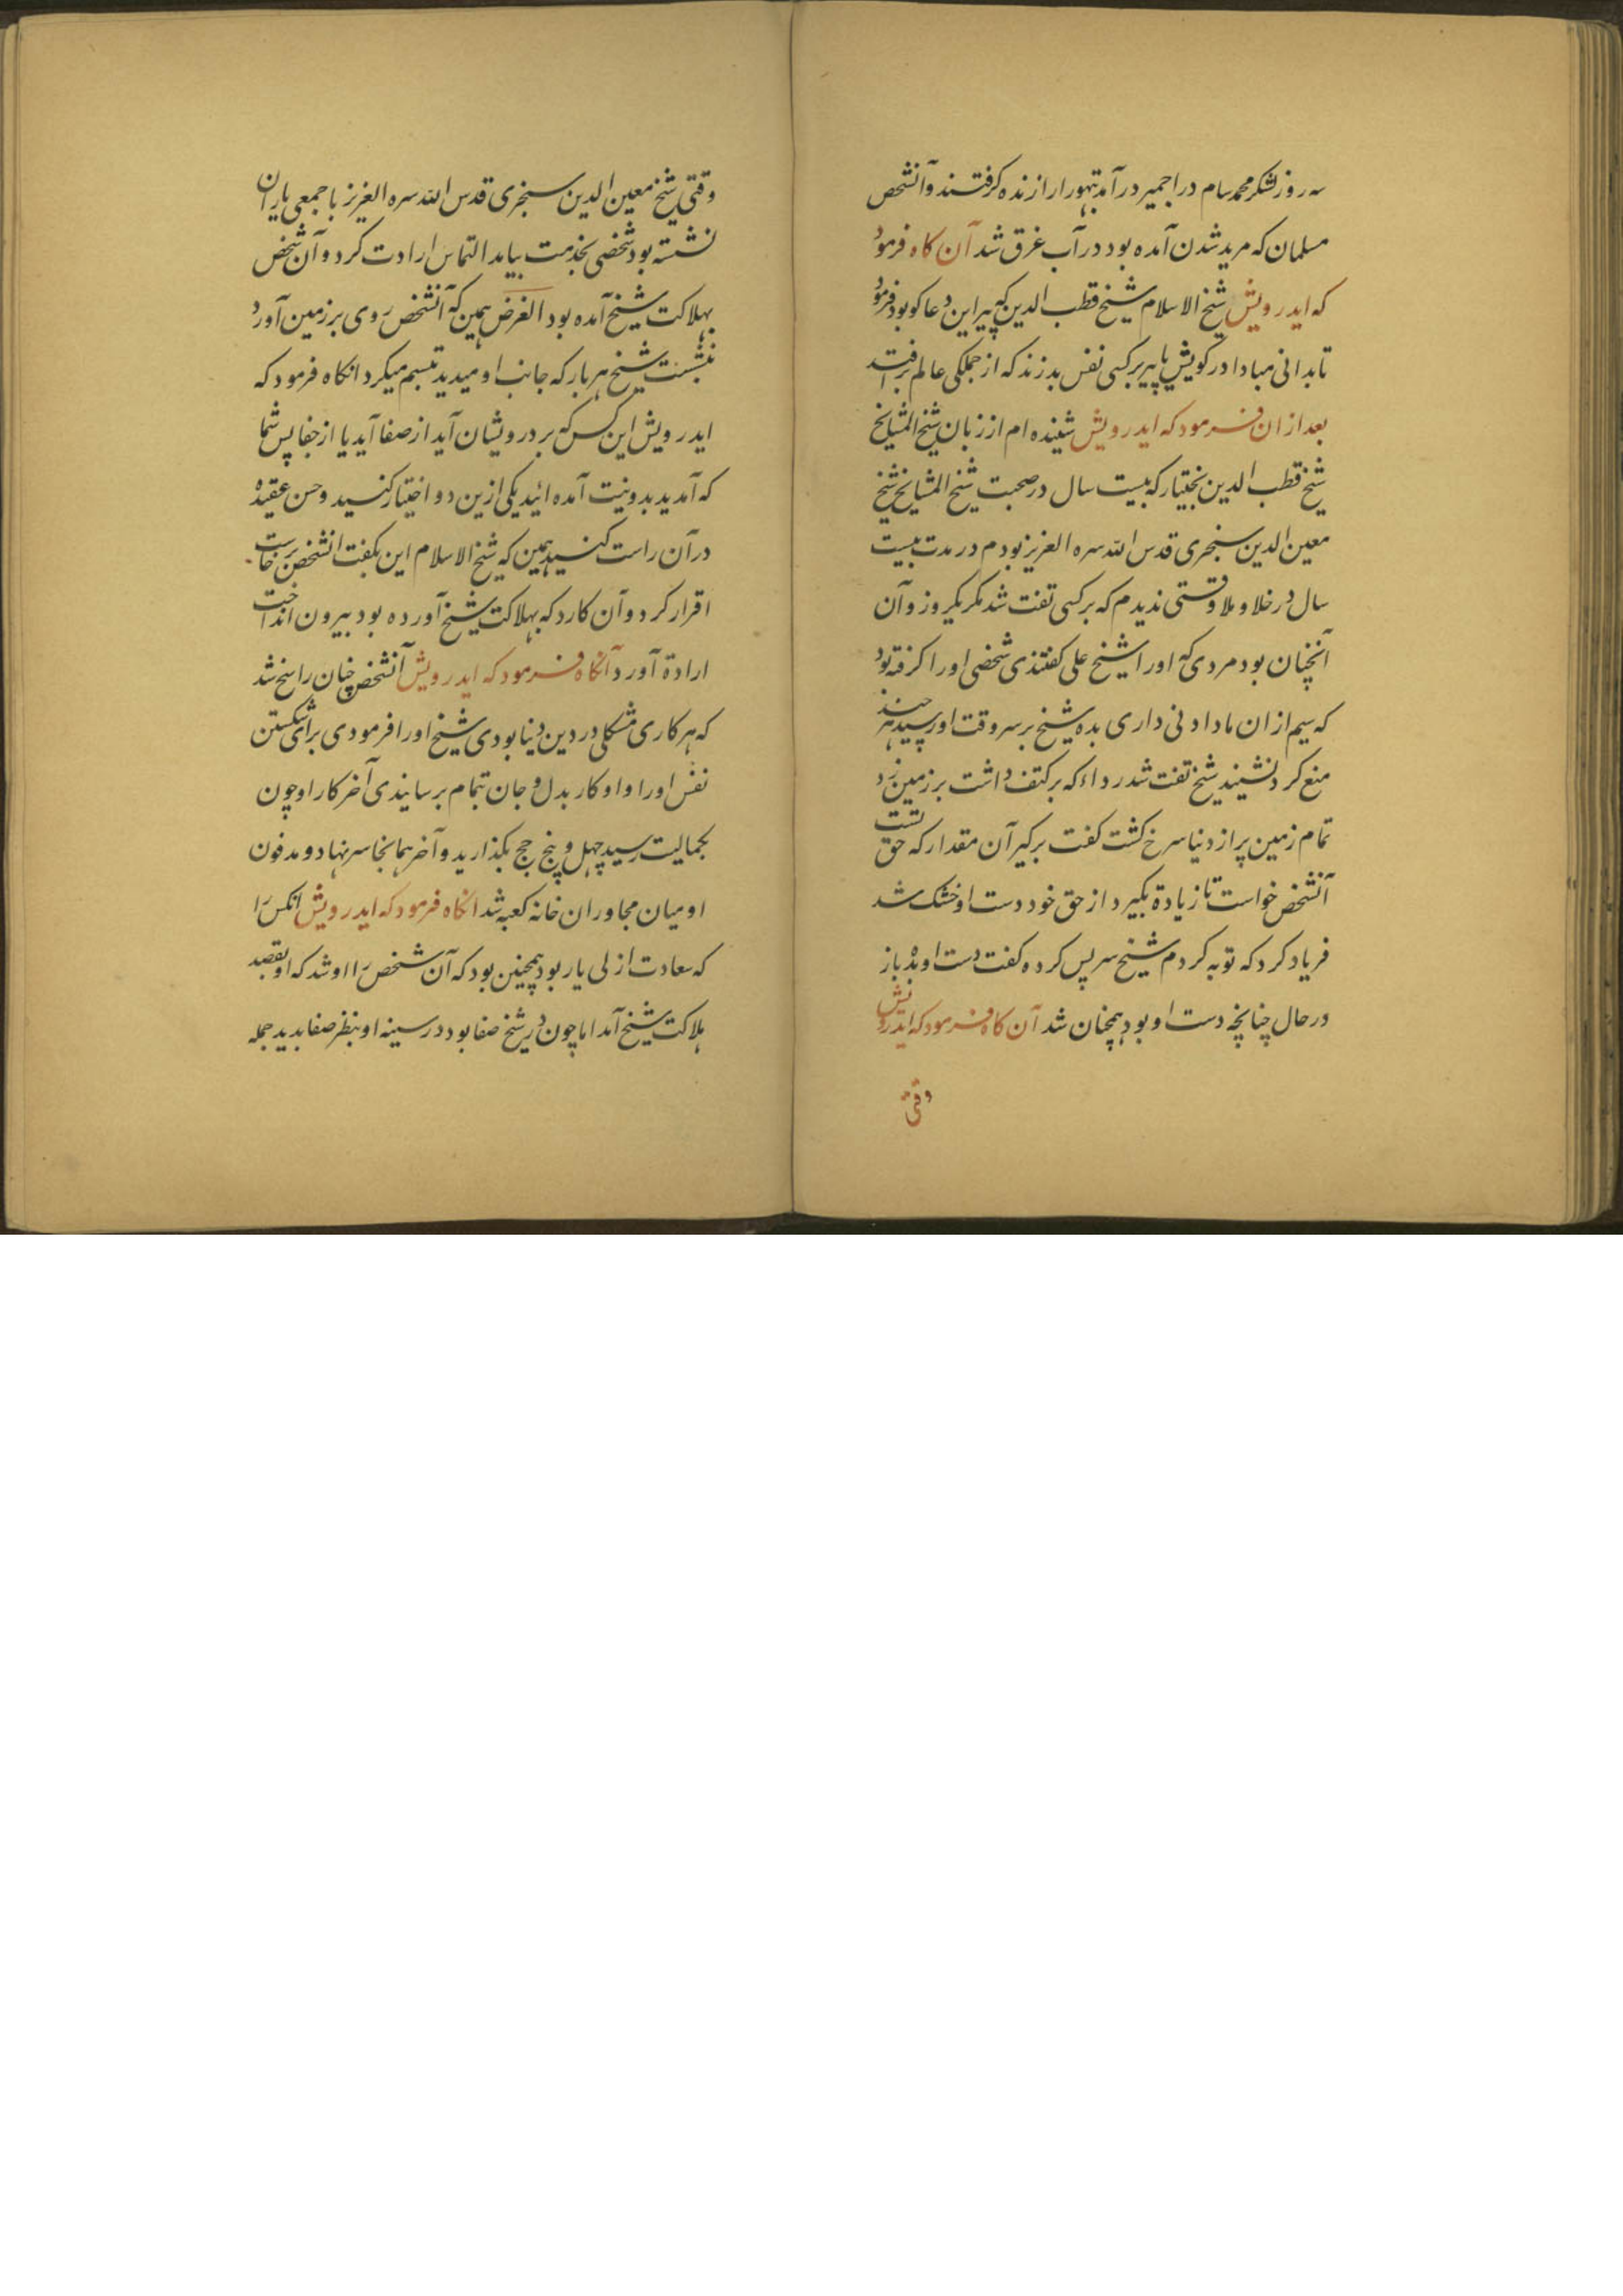 سه روز لشکر محمد سام در اجمیر درآمد تپهورا را زنده گرفتند و آنشخص
مسلمان که مرید شدن آمده بود در آب غرق شد آن کاه فرمود
که ایدرویش شیخ الاسلام شیخ قطب الدین که پیر این دعاکو بود فرمود
تا بدانی مبادا درکویش یا پیر برکسی نفس بد زند که از جملکی عالم بر افتد
بعد ازان فرمود که ایدرویش شنیده ام از زبان شیخ المشایخ
شیخ قطب الدین بختیار که بیست سال در صحبت شیخ المشایخ شیخ
معین الدین سنجری قدس الله سره العزیز بودم در مدت بیست
سال در خلا و ملا وقتی ندیدم که برکسی تفت شد مکر یکروز و آن
آنچنان بود مردی که اورا شیخ علی کفتندی شخصی اورا کرفته بود
که سیم ازان ما دادنی داری بده شیخ بر سر وقت او رسید هر چند
منع کرد نشنید شیخ تفت شد رداء که برکتف داشت بر زمین زد
تمام زمین پر از دینا سرخ کشت کفت برکیر آن مقدار که حق تست
آنشخص خواست تا زیادة بکیرد از حق خود دست او خشک شد
فریاد کرد که توبه کردم شیخ سر پس کرده کفت دست او بده باز
در حال چنانچه دست او بود همچنان شد آن کاه فرمود که ایدرویش
وقتی
وقتی شیخ معین الدین سنجری قدس الله سره العزیز با جمعی یاران
نشسته بود شخصی بخدمت بیامد التماس ارادت کرد و آن شخص
بهلاکت شیخ آمده بود الغرض همین که آنشخص روی بر زمین آورد
بنشست شیخ هر بار که جانب او میدید تبسم میکرد انکاه فرمود که
ایدرویش این کس که بر درویشان آید از صفا آید یا از جفا پس شما
که آمدید بدو نیت آمده ائید یکی ازین دو اختیار کنید و حسن عقیده
در آن راست کنید همین که شیخ الاسلام این بکفت انشخص برخاست
اقرار کرد و آن کارد که بهلاکت شیخ آورده بود بیرون انداخت
ارادة آورد آنکاه فرمود که ایدرویش آنشخص چنان راسخ شد
که هر کاری مشکلی در دین دنیا بودی شیخ اورا فرمودی برای شکستن
نفس اورا و او کار بدل و جان بتمام برسانیدی آخر کار او چون
بجمالیت رسید چهل و پنج حج بکذارید و آخر همانجا سر نهاد و مدفون
او میان مجاوران خانه کعبه شد انکاه فرمود که ایدرویش انکس را
که سعادت ازلی یار بود همچنین بود که آن شخص را او شد که او بقصد
هلاکت شیخ آمد اما چون در شیخ صفا بود در سینه او بنظر صفا بدید جمله